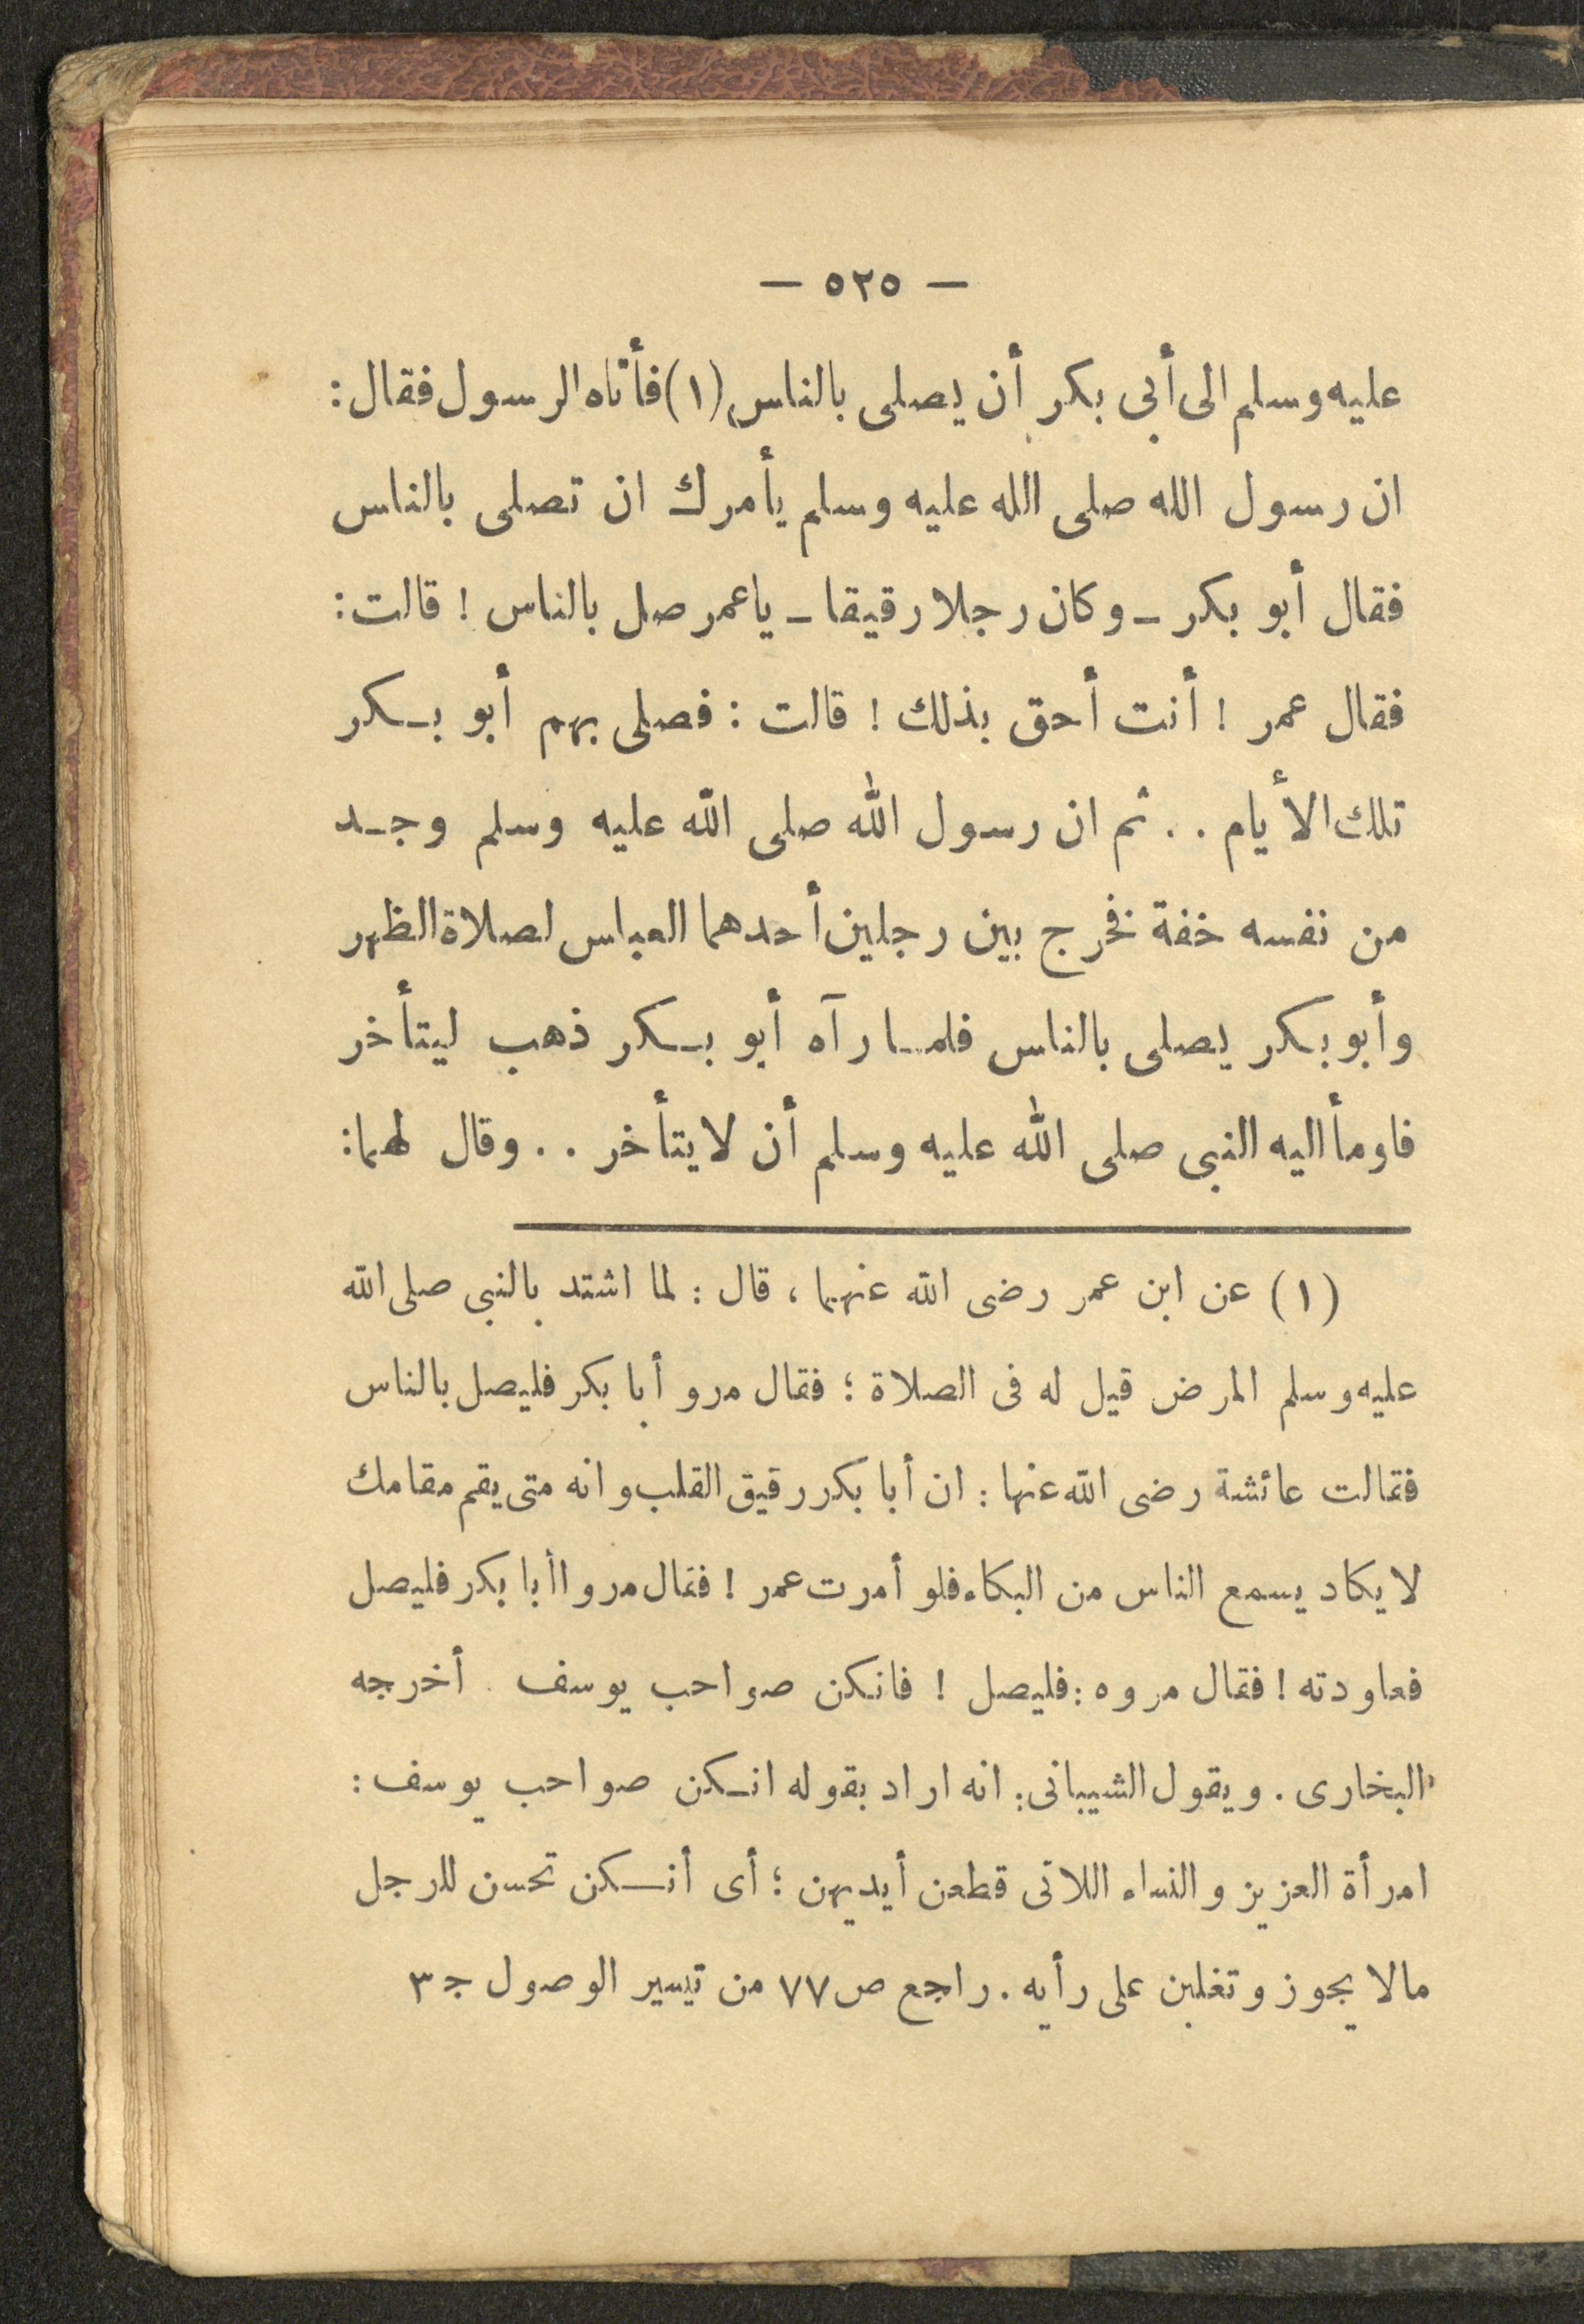 — ٥٢٥ —
عليه وسلم الى أبى بكر أن يصلى بالناس (١) فأتاه الرسول فقال:
ان رسول الله صلى الله عليه وسلم يأمرك ان تصلى بالناس
فقال أبو بكر ـ وكان رجلا رقيقا ـ ياعمر صل بالناس ! قالت:
فقال عمر ! أنت أحق بذلك ! قالت : فصلى بهم أبو بكر
تلك الأيام . . ثم ان رسول الله صلى الله عليه وسلم وجد
من نفسه خفة فخرج بين رجلين أحدهما العباس لصلاة الظهر
وأبو بكر يصلى بالناس فلما رآه أبو بكر ذهب ليتأخر
فاومأ اليه النبى صلى الله عليه وسلم أن لا يتأخر . . وقال لهما:
(١) عن ابن عمر رضى الله عنهما ، قال : لما اشتد بالنبى صلى الله
عليه وسلم المرض قيل له فى الصلاة ؛ فقال مرو أبا بكر فليصل بالناس
فقالت عائشة رضى الله عنها : ان أبا بكر رقيق القلب وانه متى يقم مقامك
لا يكاد يسمع الناس من البكاء فلو أمرت عمر ! فقال مروا أبا بكر فليصل
فعاودته ! فقال مروه : فليصل ! فانكن صواحب يوسف . أخرجه
البخارى . ويقول الشيبانى : انه اراد بقوله انكن صواحب يوسف :
امرأة العزيز والنساء اللاتى قطعن أيديهن ؛ أى أنكن تحسن للرجل
مالا يجوز وتغلبن على رأيه . راجع ص ٧٧ من تيسير الوصول جـ ٣